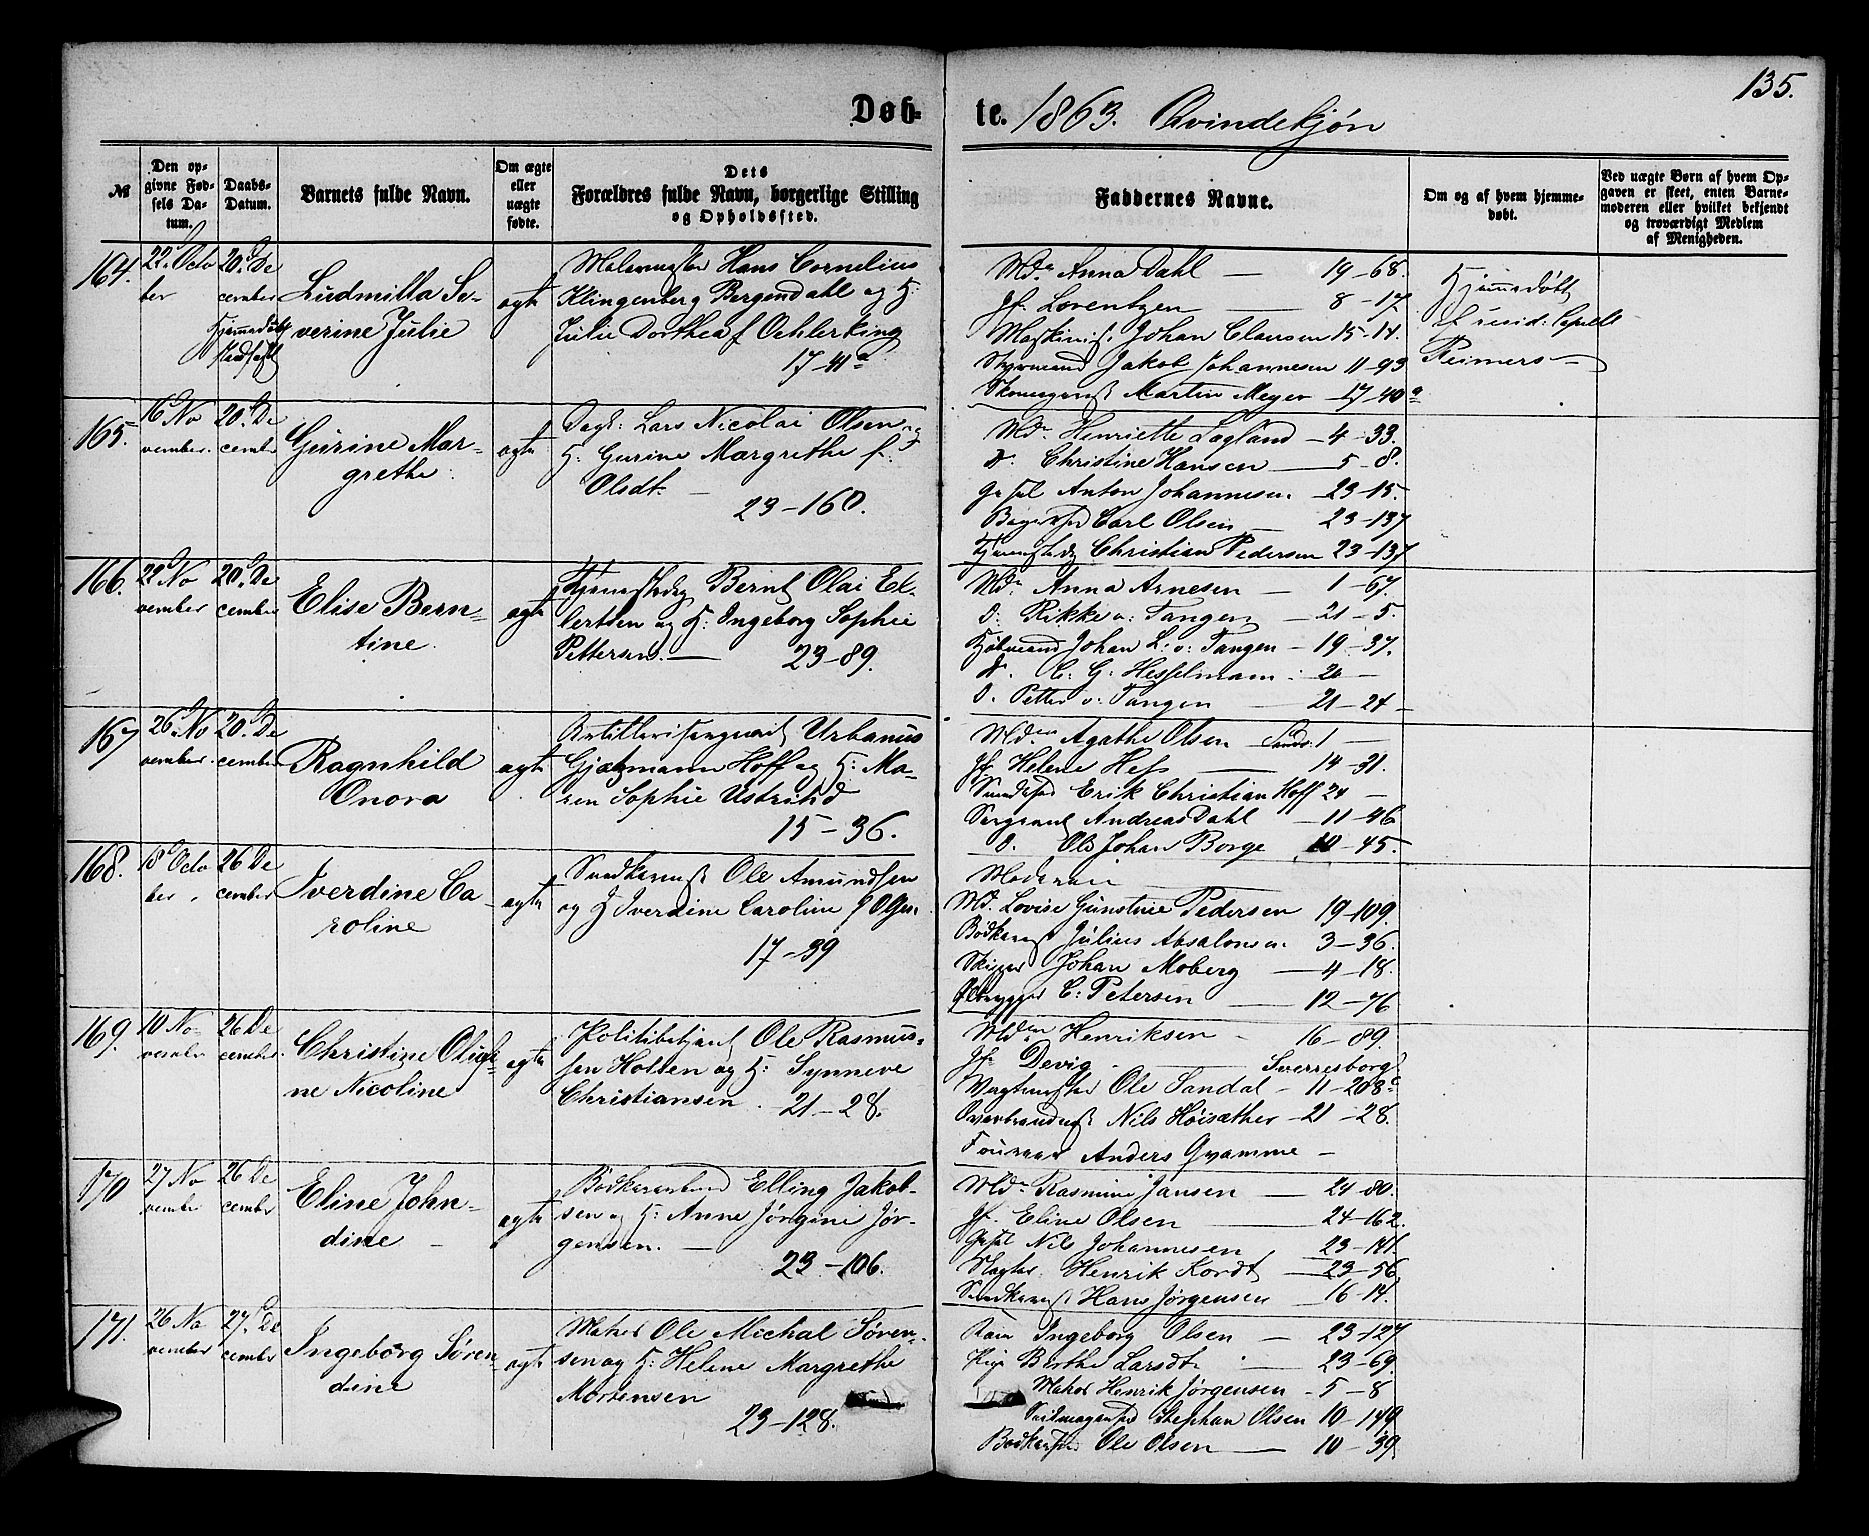 135.
Døb-
te. 1863. Qvindekjøn
№
Den op-
givne Fød-
sels Da-
tum.
Daabs-
Datum.
Barnets fulde Navn.
Om ægte
eller
uægte
fødte.
Dets
Forældres fulde Navn, borgerlige Stilling
og Opholdssted.
Faddernes Navne.
Om og af hvem hjemme-
døbt.
Ved uægte Børn af hvem Op-
gaven er skeet, enten Barne-
moderen eller hvilket bekjendt
og troværdigt Medlem
af Menigheden.
164.
22. Octo
ber
20. De
cember
Hjemmedøbt
stadfæst
Ludmilla Se-
verine Julie
ægte
Malermester Hans Cornelius
Klingenberg Bergendahl og H:
Julie Dorthea f Oehlerking
17-41a
Md. Anna Dahl — 19-68.
Jf. Lorentzen — 8-17.
Maskinist Johan Clausen 15-14.
Styrmand Jakob Johannesen 11-93
Skomagerst Martin Meyer — 17-40a
Hjemmedøbt
af resid: Capell.
Reimers
165.
16 No
vember.
20. De
cember
Gurine Mar-
grethe.
ægte
Dagk: Lars Nicolai Olsen og
H. Gurine Margrethe f.
Olsdt. —
23-160.
Md. Henriette Lagland — 4-33.
d. Christine Hansen — 5-8.
Gesel Anton Johannesen 23-15.
Bagersv Carl Olsen — 23-137
Christian Pedersen 23-137
166.
22 No
vember
20. De
cember
Elise Bern-
tine.
ægte
Bernt Olai El-
lertsen og H: Ingeborg Sophie
Pettersen. — 23-89.
Md. Anna Arnesen — 1-67.
d. Rikke v: Tangen — 21-5.
Kjøbmand Johan L: v: Tangen — 19-37.
d. C. G. Hesselmann : 20 —
d. Petter v: Tangen — 21-24 —
167
26. No
vember.
20. De
cember
Ragnhild
Onora
ægte
Artillerisergeant Urbanus
Gjætzmann Hoff og H: Ma-
ren Sophie Ustritid
15-36.
Mdm Agathe Olsen Sandv. 1 —
Jf Helene Hess — 14-31.
Erik Christian Hoff 24 —
Sergeant Andreas Dahl — 11-46
d. Ole Johan Borge 10-45.
168.
18 Octo
ber
26 De
cember
Iverdine Ca-
roline
ægte
Snedkersv Ole Amundsen
og H Iverdine Caroline f Olsen
17-39
Moderen —
Md. Lovise Gunstine Pedersen 19-109.
Bødkersv Julius Absalonsen 3-36.
Skipper Johan Moberg — 4-18.
Ølbrygger C: Petersen — 12-76
169.
10 No
vember
26 De
cember
Christine Oluf-
ne Nicoline
egte
Politibetjent Ole Rasmus-
sen Holten og H: Synneve
Christiansen. 21-28.
Mdm Henriksen — 16-89.
Jf. Devig — Sverresborg
Vagtmester Ole Sandal — 11-208c
Overbrandm Nils Høisæther — 21-28.
Fourer Anders Gvamme —
170
27 No
vember
26 De
cember
Eline John-
dine —
ægte
Bødkersvend Elling Jakob-
sen og H: Anne Jørgine Jør-
gensen. —
23-106.
Md. Rasmine Jansen — 24-80.
Jf. Eline Olsen — 24-162.
Gesel Nils Johannesen 23-141.
Slagter Henrik Kordt — 23-56
Snedkersv Hans Jørgensen — 16-14.
171.
26 No
vember
27. De
cember
Ingeborg Søren-
dine
ægte
Maler Ole Michal Søren-
sen og H: Helene Margrethe
Mortensen
23-128.
Ingeborg Olsen — 23-127.
Pige Berthe Larsdt. — 23-69.
Maler Henrik Jørgensen — 5-8
Seilmagersv Stephan Olsen 10-149.
Bødkersv Ole Olsen — 10-39.